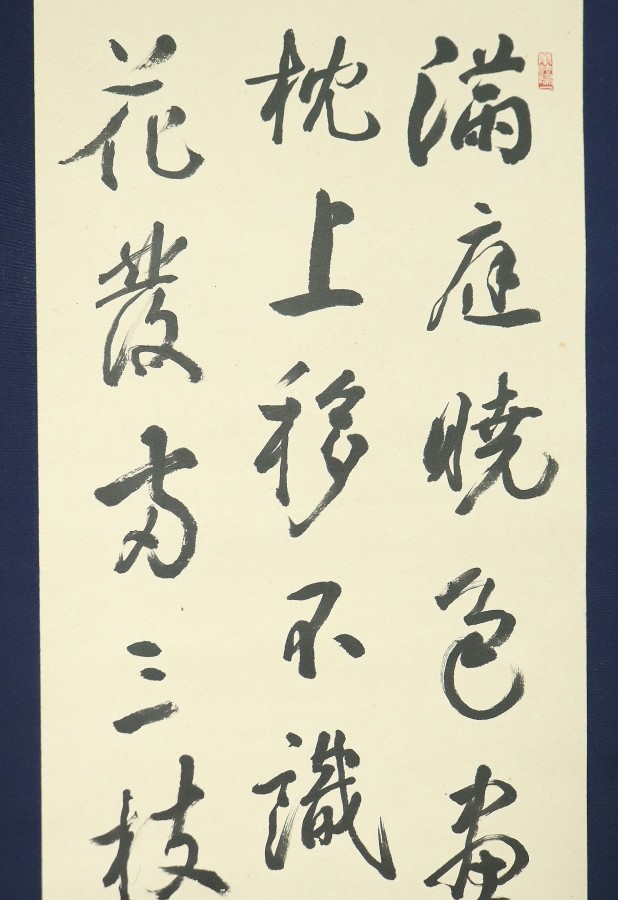 滿庭曉色畫
枕上移不識
花發兩三枝